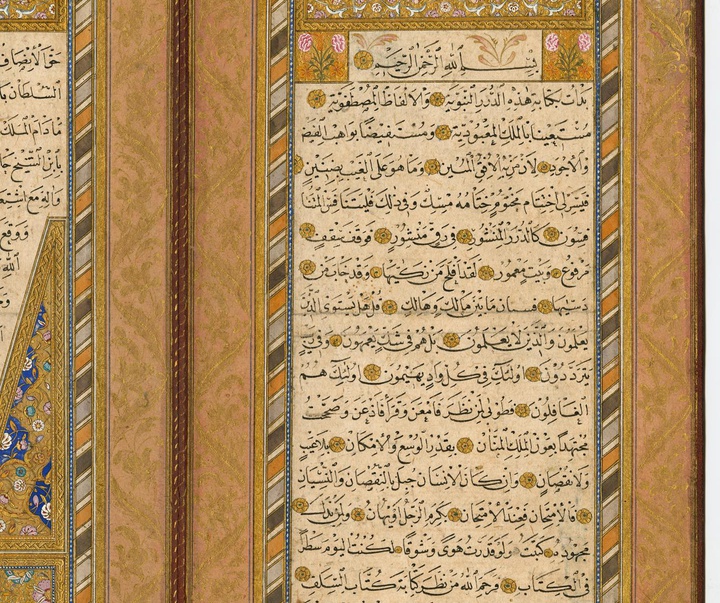 بسم الله الرحمن الرحيم
بدات بكتابة هذه الدرر النبوية والالفاظ المصطفوية
مستعينا بالملك المعبود به ومستفيضا بواهب الفيض
والاجود بالافق المبين وما هو على الغيب بضنين
فتيسر لي اختتام مختوم ختامه مسك وفي ذلك فليتنافس المتنا
فسون كالدرر المنثور في رق منشور فوقف سقف
مرفوع وبيت معمور لقد افلح من زكيها وقد خاب من
دسيها فستان ما بين مالك وهالك قل هل يستوي الذين
يعلمون والذين لا يعلمون بل هم في شك يعمهون وفي ريب
يترددون اولئك في كل واد يهيمون اولئك هم
الغافلون فطوبى لمن نظر فامعن وقرأ فاذعن وصحت
مجتهدا بعون الملك المنان بقدر الوسع والامكان بلا عيب
ولا نقصان وان كان الانسان جبل بالنقصان والنسيان
فالامتحان فعند الامتحان يكرم الرجل او يهان ولكن بذلت
مجهود كتبت ولو قدرت هوى وشوقا لكنت اليوم سطرا
في الكتاب فرحم الله من نظر كتابة كتاب السلف
حق الانصاف
السلطان
مادام الملك
بابن الشيخ
واله مع
ووقع
الله